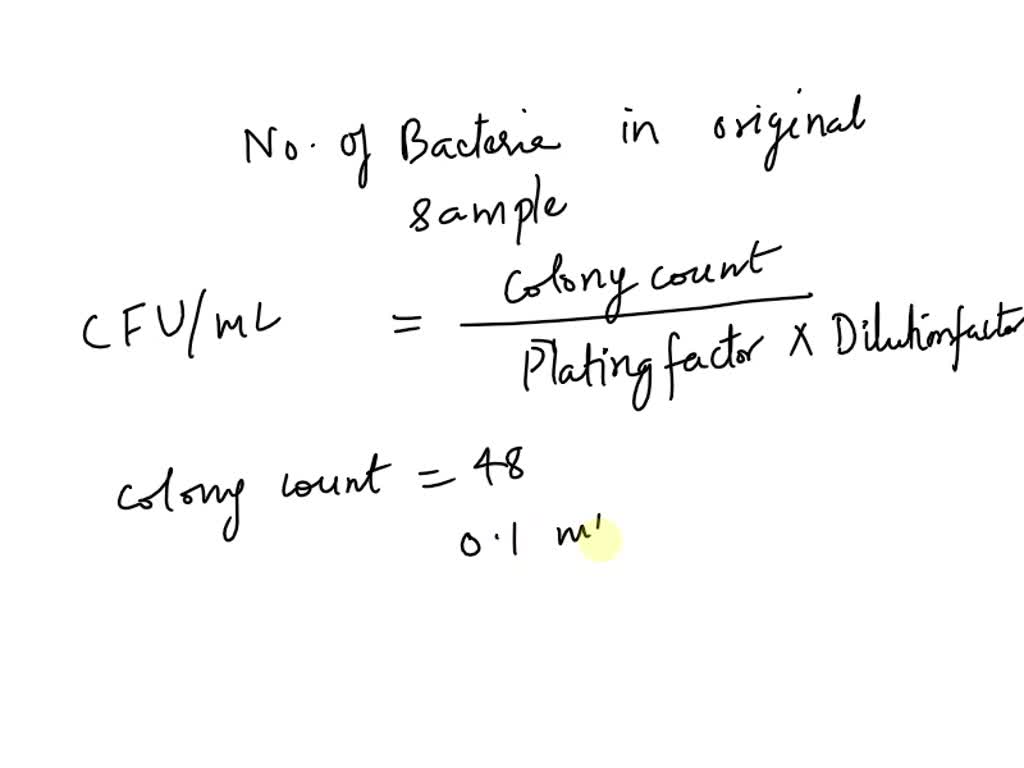 No. of Bacteria in original
sample
CFU/mL = Colony count
Plating factor X Dilution factor
colony count = 48
0.1 ml